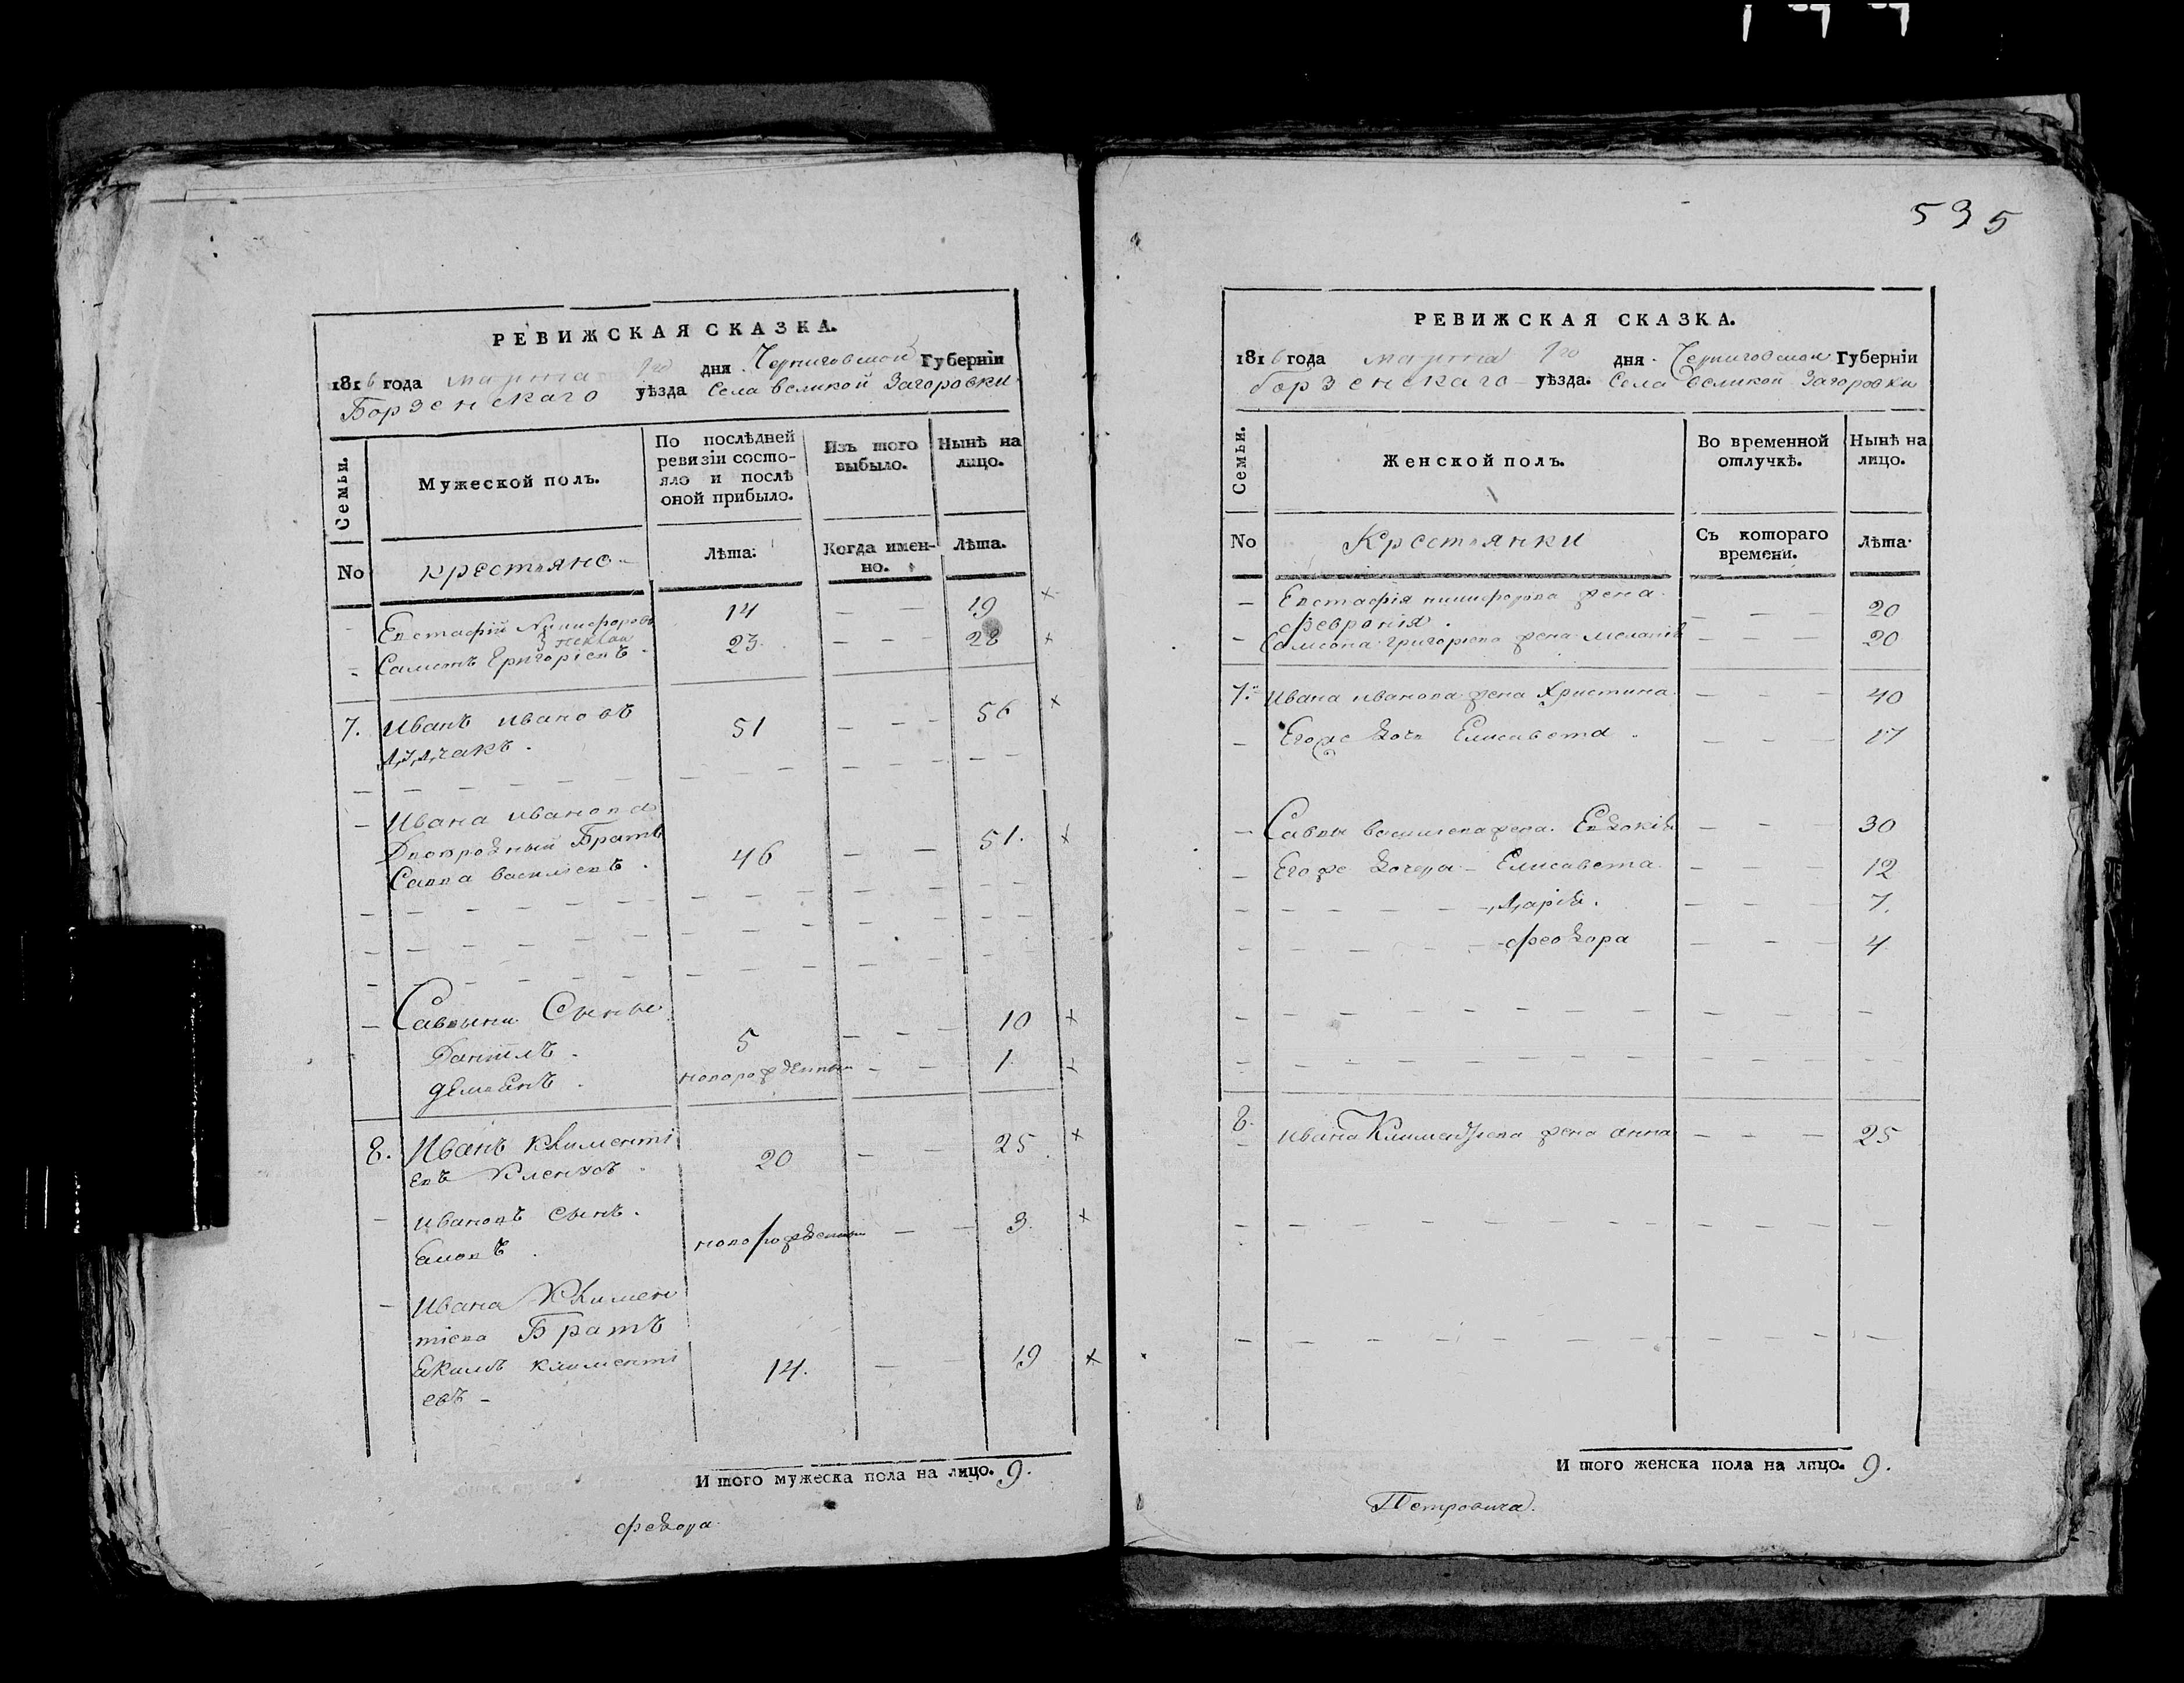 РЕВИЖСКАЯ СКАЗКА.
1816 года марта дня Черниговской Губерніи
Борзенскаго уѣзда Села великой Загоровки
Семьи.
Мужеской полъ.
По послѣдней ревизіи состояло и послѣ оной прибыло.
Изъ того выбыло.
Нынѣ на лицо.
No
крестьяне
Лѣта.
Когда именно.
Лѣта.
Евстафій Никифоровъ 14 — — 19 ×
Самсонъ Григоріевъ 23 — — 28 ×
7. Иванъ Ивановъ 51 — — — 56 ×
Ивана Иванова
Двоюродный Братъ
Савва Василіевъ 46 — — 51. ×
Саввины Сыны
Даніилъ 5 — — — 10 ×
Демянъ новорожденный — — 1 ×
8. Иванъ Клименті
евъ 20 — — 25. ×
Ивановъ сынъ новорожденный — — 3. ×
— Ивана Климен
тіева Братъ
Екимъ клименті
евъ — 14. — — 19 ×
И того мужеска пола на лицо. 9.
Федора
535
РЕВИЖСКАЯ СКАЗКА.
1816 года марта дня Черниговской Губерніи
борзенскаго уѣзда. Села великой Загоровки
Семьи.
Женской полъ.
Во временной отлучкѣ.
Нынѣ на лицо.
No
Крестьянки
Съ котораго времени.
Лѣта.
— Евстафія никифорова жена
Февронія. — — — 20
— Самсона григорієва жена меланія — — — 20
7. Ивана иванова жена Христина — — — 40
— Его же дочь Елисавета — — — 17
— Саввы василіева жена. Евдокія — — — 30
— Его же дочери — Елисавета — — — 12
Дарія. — — — 7.
Феодора — — — 4
8. Ивана Климентіева жена анна — — — 25
И того женска пола на лицо. 9.
Петровича.